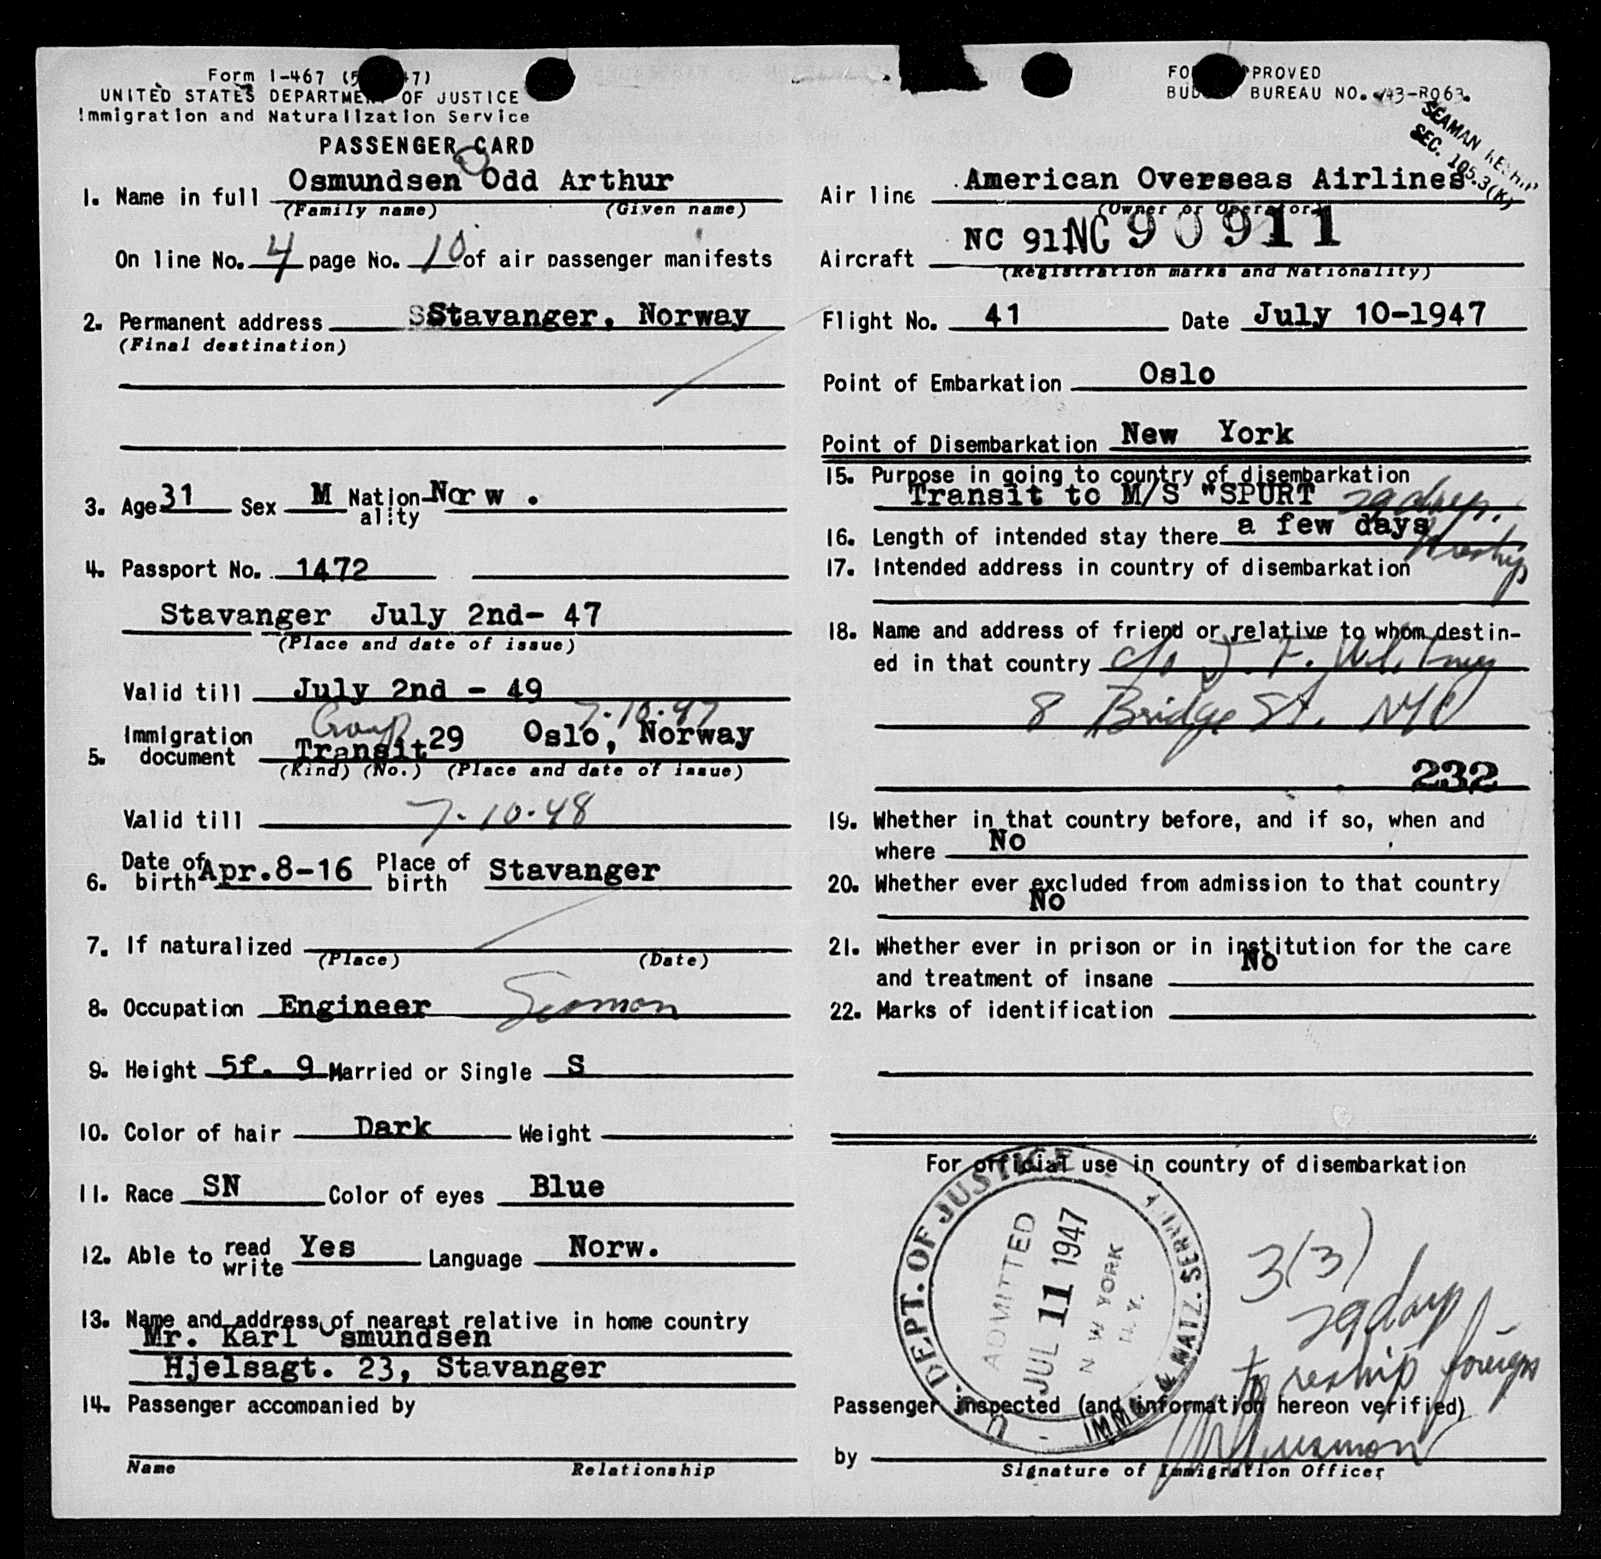 Form I-467
UNITED STATES DEPARTMENT OF JUSTICE
Immigration and Naturalization Service
PASSENGER CARD
1. Name in full Osmundsen Odd Arthur
(Family name) (Given name)
On line No. 4 page No. 10 of air passenger manifests
2. Permanent address Stavanger, Norway
(Final destination)
3. Age 31 Sex M Nation-ality Norw.
4. Passport No. 1472
Stavanger July 2nd- 47
(Place and date of issue)
Valid till July 2nd - 49
Group 7-10-47
5. Immigration document Transit 29 Oslo, Norway
(Kind) (No.) (Place and date of issue)
Valid till 7-10-48
6. Date of birth Apr.8-16 Place of birth Stavanger
7. If naturalized
(Place) (Date)
8. Occupation Engineer Seaman
9. Height 5f. 9 Married or Single S
10. Color of hair Dark Weight
11. Race SN Color of eyes Blue
12. Able to read write Yes Language Norw.
13. Name and address of nearest relative in home country
Mr. Karl Osmundsen
Hjelsagt. 23, Stavanger
14. Passenger accompanied by
Name Relationship
FORM APPROVED
BUDGET BUREAU NO. 43-R063.
SEAMAN RESHIP
SEC. 105.3(K)
Air line American Overseas Airlines
(Owner or Operator)
Aircraft NC 911 NC 90911
(Registration marks and Nationality)
Flight No. 41 Date July 10-1947
Point of Embarkation Oslo
Point of Disembarkation New York
15. Purpose in going to country of disembarkation
Transit to M/S "SPURT 29 days.
16. Length of intended stay there a few days reship
17. Intended address in country of disembarkation
18. Name and address of friend or relative to whom destin-
ed in that country c/o J. F. Whitney
8 Bridge St. NYC
232
19. Whether in that country before, and if so, when and
where No
20. Whether ever excluded from admission to that country
No
21. Whether ever in prison or in institution for the care
and treatment of insane No
22. Marks of identification
For official use in country of disembarkation
U. S. DEPT. OF JUSTICE
IMMIG. & NATZ. SERVICE
ADMITTED
JUL 11 1947
NEW YORK
N. Y.
3(3)
29 days
to reship foreign
Passenger inspected (and information hereon verified)
by
Signature of Immigration Officer